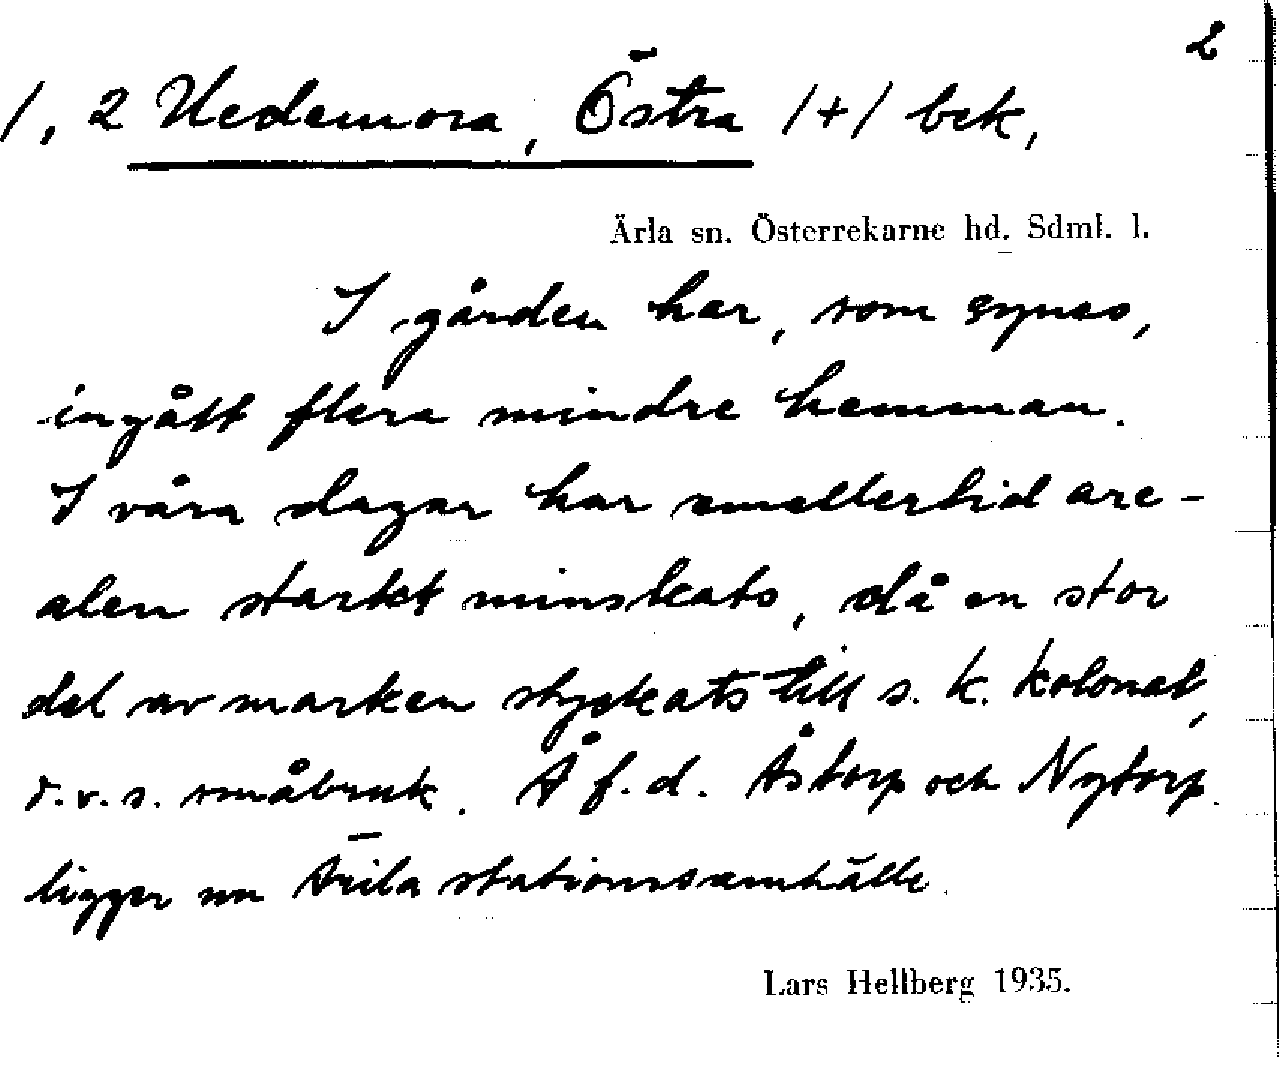 2
1, 2 Hedemora, Östra /+/ bek,
Ärla sn. Österrekarne hd. Sdml. l.
I gården har, som synes,
ingått flera mindre hemman.
I våra dagar har emellertid are-
alen starkt minskats, då en stor
del av marken styckats till s. k. kolonat,
d.v.s. småbruk. Å f.d. Åstorp och Nytorp
ligger nu Ärila stationssamhälle.
Lars Hellberg 1935.